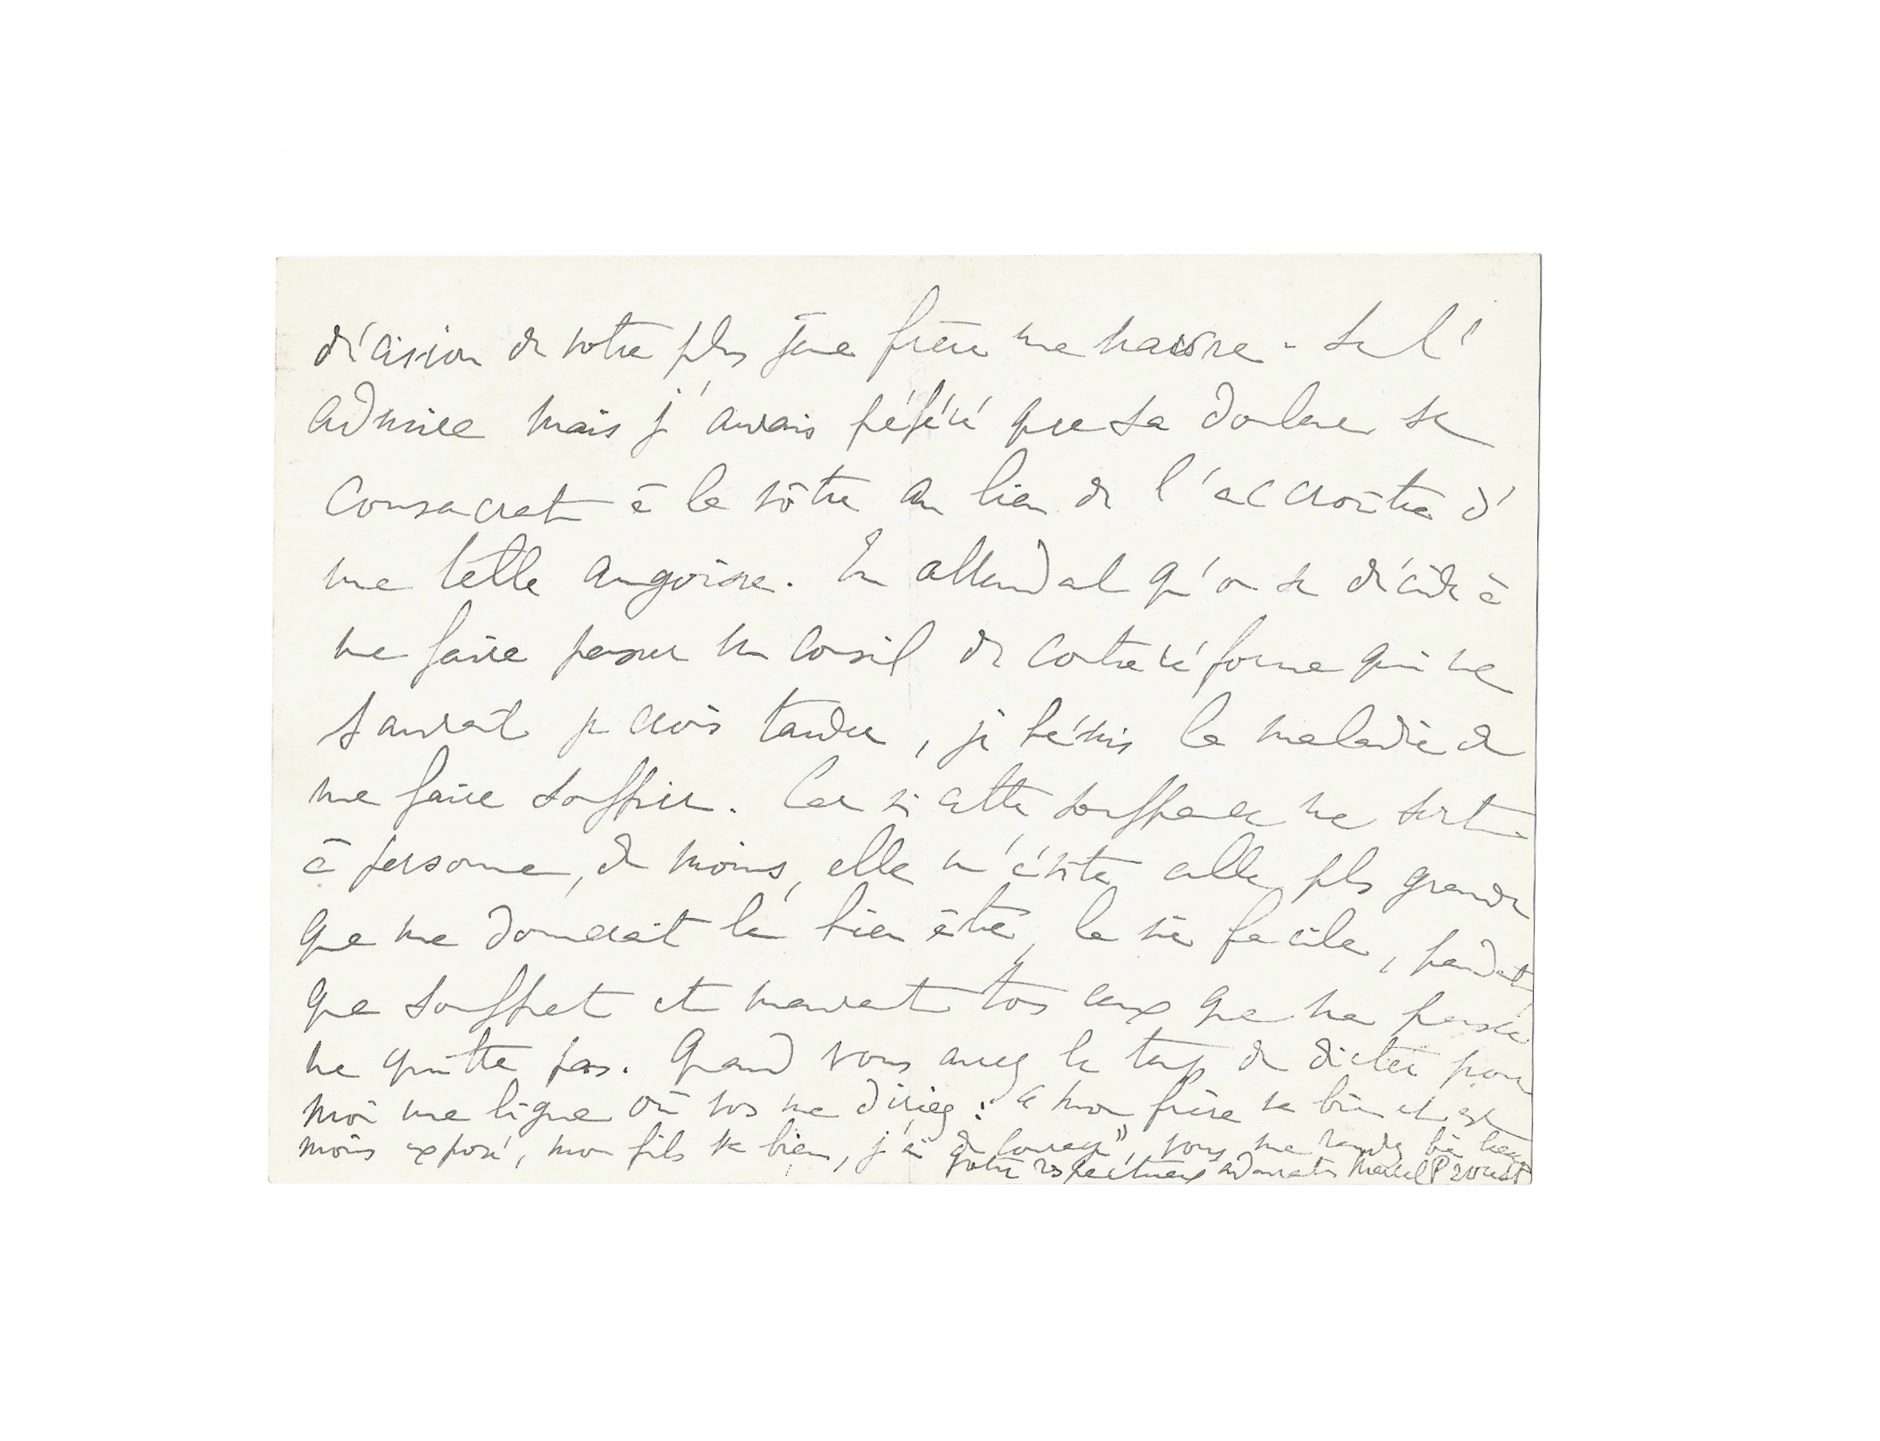 décision de votre plus jeune frère me navre. Je l'
admire mais j'aurais préféré que sa douleur se
consacrât à la vôtre au lieu de l'accroître d'
une telle angoisse. En attendant qu'on se décide à
me faire passer un conseil de contre réforme qui ne
saurait je crois tarder, je bénis la maladie de
me faire souffrir. Car si cette souffrance ne sert
à personne, du moins, elle m'évite celle plus grande
que me donnerait le bien être, la vie facile, pendant
que souffrent et meurent tous ceux que ma pensée
ne quitte pas. Quand vous aurez le temps de dicter pour
moi une ligne où vous me direz : " mon frère va bien et est
moins exposé, mon fils va bien, j'ai du courage", vous me rendrez bien heureux
Votre respectueux admirateur Marcel Proust